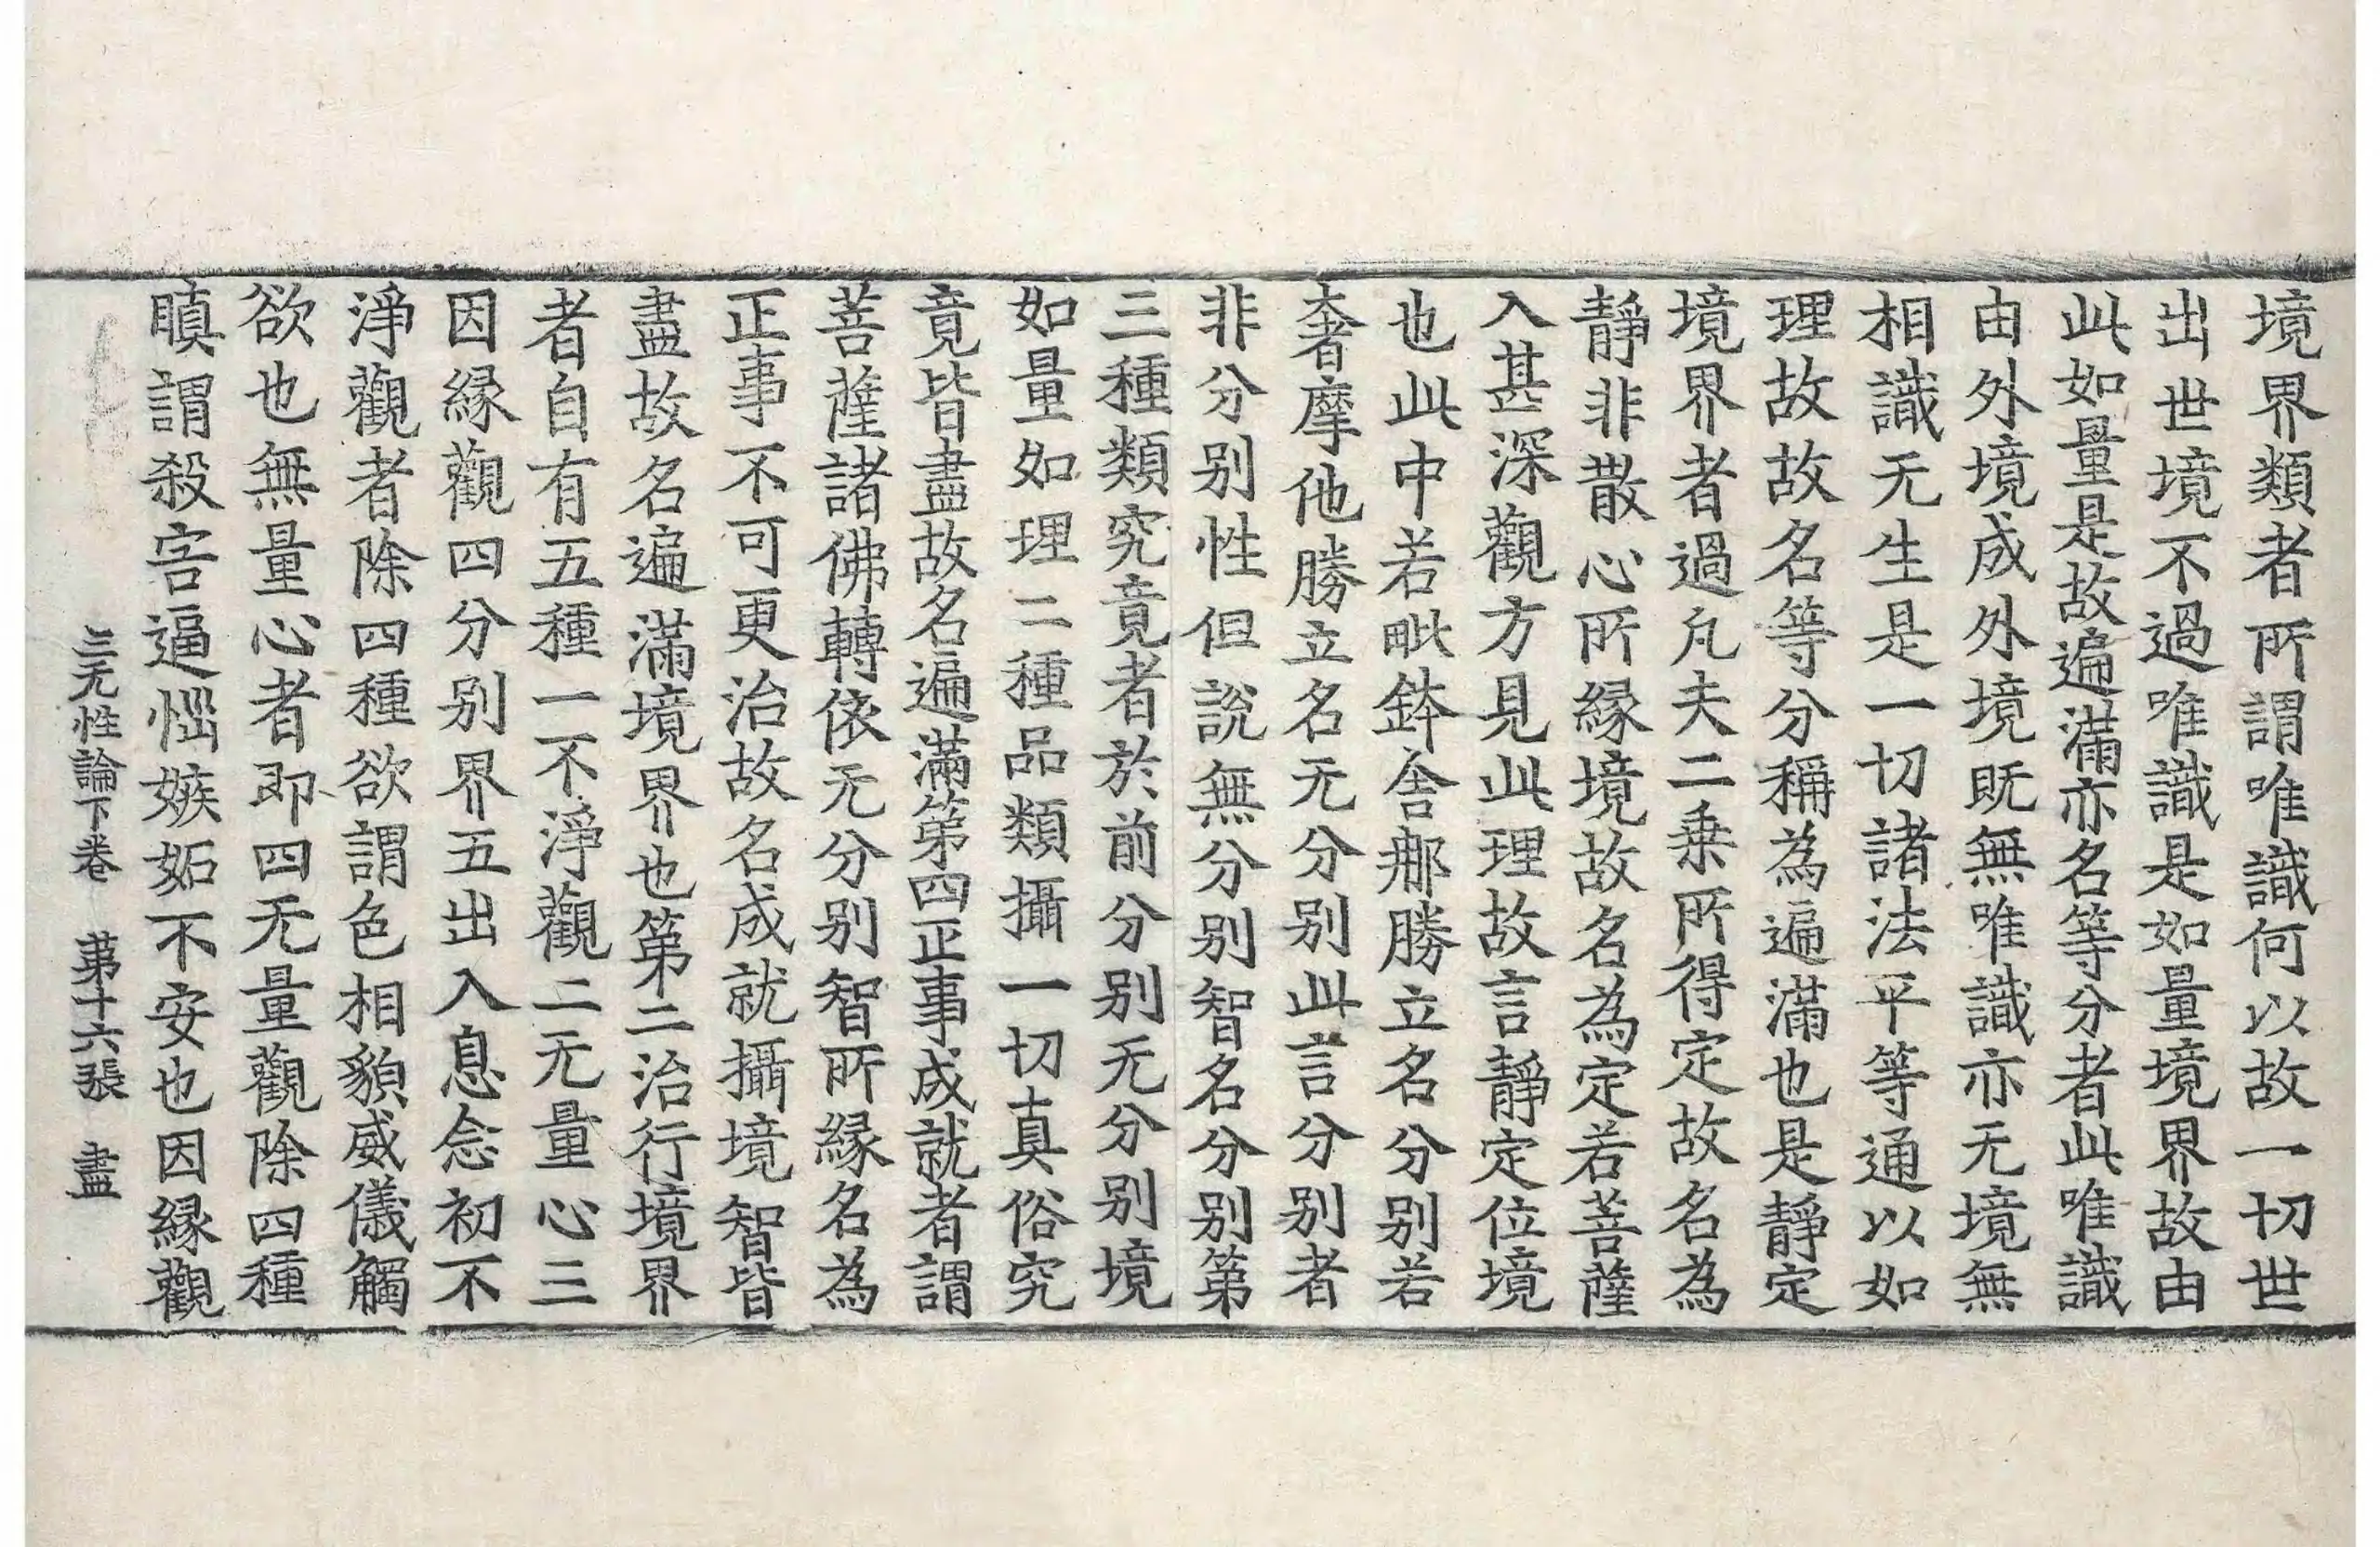 境界類者所謂唯識何以故一切世
出世境不過唯識是如量境界故由
此如量是故遍滿亦名等分者此唯識
由外境成外境既無唯識亦无境無
相識无生是一切諸法平等通以如
理故故名等分稱為遍滿也是靜定
境界者過凡夫二乗所得定故名為
靜非散心所縁境故名為定若菩薩
入甚深觀方見此理故言靜定位境
也此中若毗鉢舍那勝立名分别若
奢摩他勝立名无分别此言分别者
非分别性但說無分别智名分别第
三種類究竟者於前分别无分别境
如量如理二種品類攝一切真俗究
竟皆盡故名遍滿第四正事成就者謂
菩薩諸佛轉依无分别智所縁名為
正事不可更治故名成就攝境智皆
盡故名遍滿境界也第二治行境界
者自有五種一不淨觀二无量心三
因縁觀四分别界五出入息念初不
淨觀者除四種欲謂色相貌威儀觸
欲也無量心者即四无量觀除四種
瞋謂殺害逼惱嫉妬不安也因縁觀
三无性論下卷 苐十六張 盡